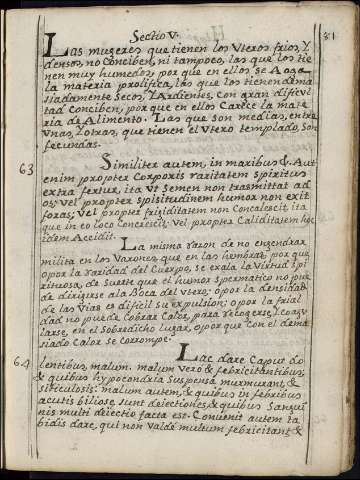 Sectio V.
81
Las mugeres que tienen los Uteros frios, Y
densos, no Conciben, ni tampoco, las que los tie
nen muy humedos, porque en ellos se Aoga
la materia prolifica, las que los tienen dema
siadamente Secos, Y Ardientes, Con gran dificul
tad Conciben, por que en ellos Carece la mate
ria de Alimento. Las que son medias, entre
Unas, Y otras, que tienen el Utero templado, son
fecundas.
63
Similiter autem, in maribus &. Aut
enim propter Corporis raritatem Spiritus
extra fertur, ita Ut Semen non trasmittat ad
os; Vel propter spisitudinem humor non exit
foras; Vel propter frigiditatem non Concalescit, ita
que in eo loco Concrescit, Vel propter Caliditatem hoc
idem Accidit.
La misma razon de no engendrar
milita en los Varones, que en las hembras, por que
o por la raridad del Cuerpo, se exala la Virtud Spi
rituosa, de Suerte que el humor Spermatico no pue
de dirigirse a la Boca del Utero; o por la densidad
de las Vias es dificil su expulsion; o por la frial
dad no puede Cobrar Calor, para recogerse, Y coagu
larse, en el Sobredicho lugar, o por que con el dema
siado Calor se Corrompe.
64
Lac dare Caput do
lentibus, malum. malum Vero & febricitantibus,
& quibus hypocondria Suspensa murmurant, &
siticulosis: malum autem, & quibus in febribus
acutis biliose sunt deiectiones, & quibus Sangui
nis multi deiectio facta est. Convenit autem ta
bidis dare, qui non Valde multum febricitant &